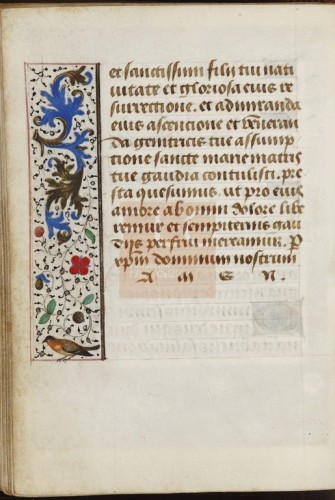 et sanctissim filij tui nati
uitate et gloriosa eius re
surrectione. et admiranda
eius ascencione et veneran
da genitricis tue assump
tione sancte marie matris
tue gaudia contulisti. pre
sta quesumus. ut pro eius
amore ab omni dolore libe
remur et sempiternis gau
dijs perfrui mereamur. P
dominum nostrum
A M E N.